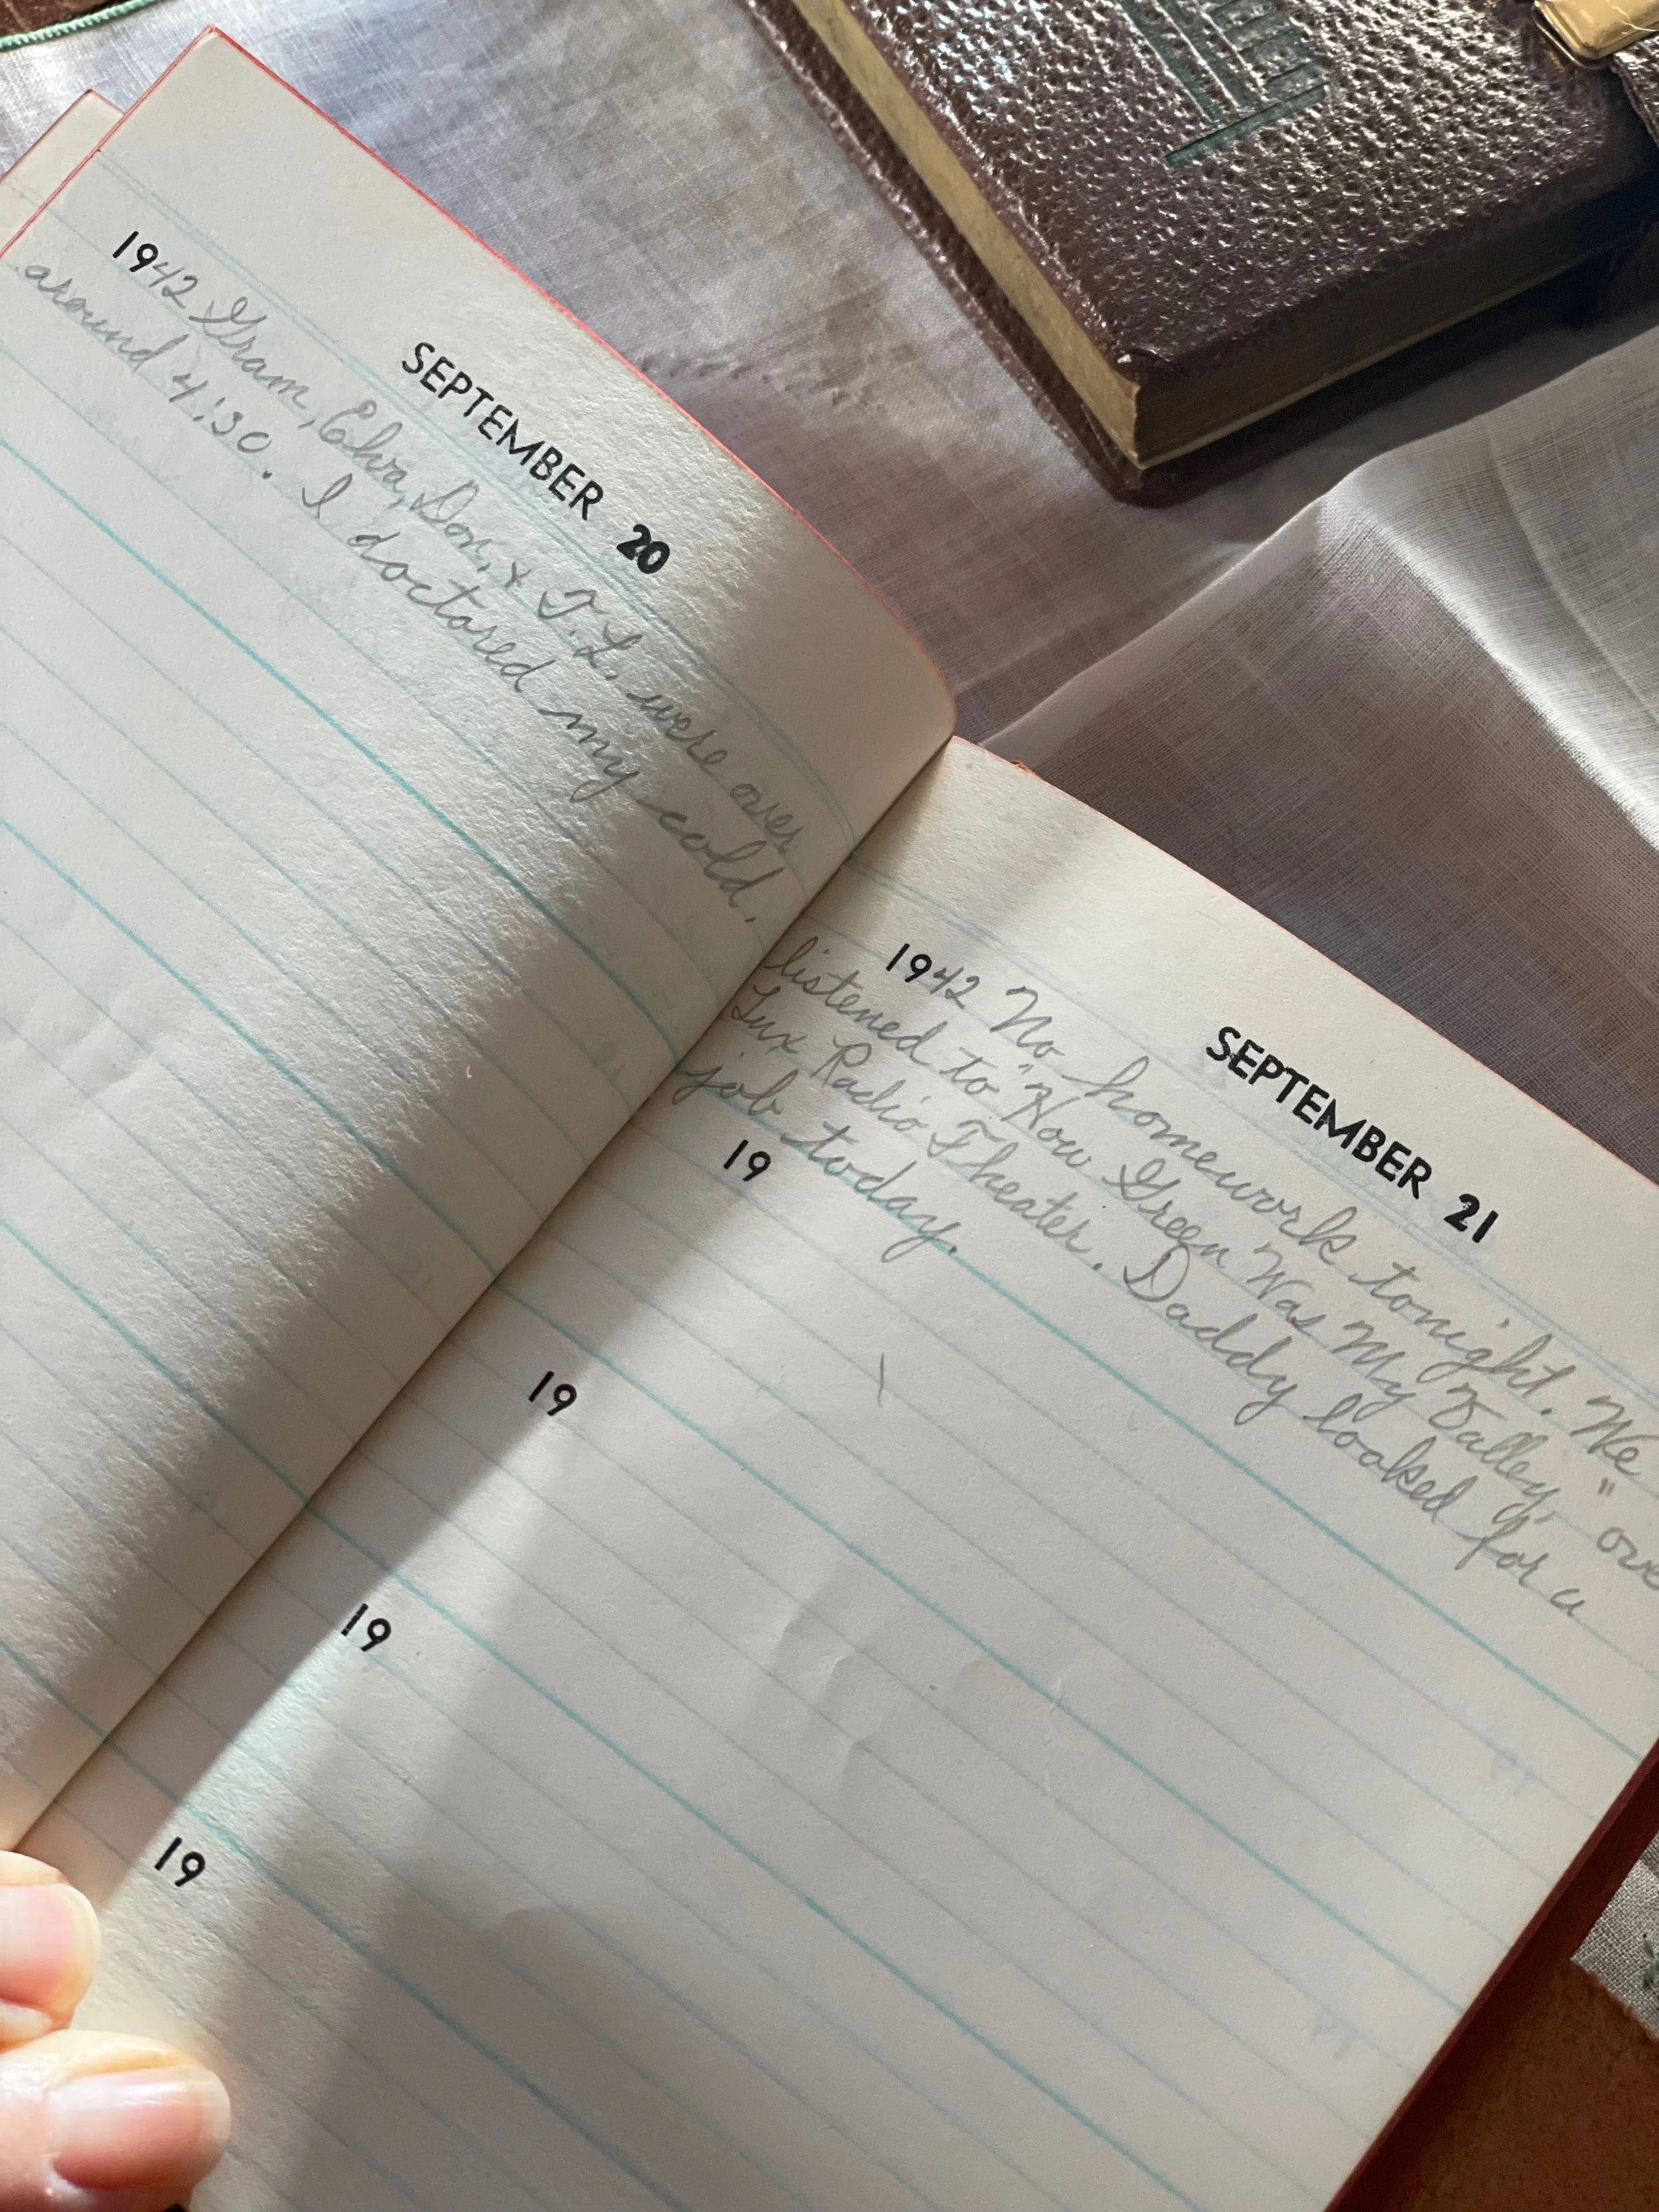 SEPTEMBER 20
1942 Gram, Elva, Don, & T.L. were over
around 4:30. I doctored my cold.
SEPTEMBER 21
1942 No homework tonight. We
listened to "How Green Was My Valley," ove
Lux Radio Theater. Daddy looked for a
job today.
19
19
19
19